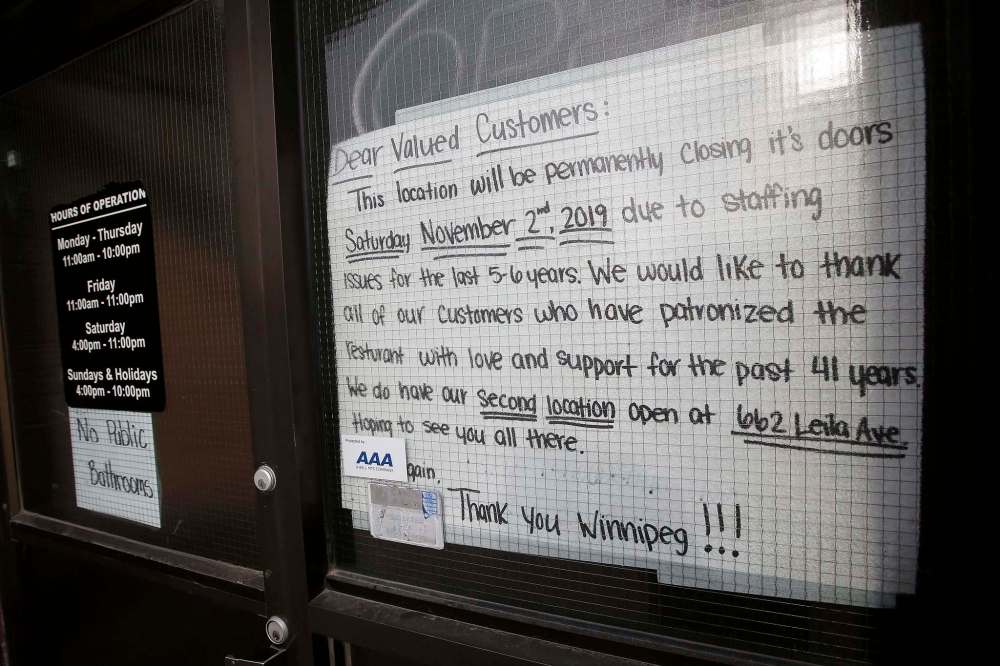 HOURS OF OPERATION
Monday - Thursday
11:00am - 10:00pm
Friday
11:00am - 11:00pm
Saturday
4:00pm - 11:00pm
Sundays & Holidays
4:00pm - 10:00pm
No Public
Bathrooms
Dear Valued Customers:
This location will be permanently closing it's doors
Saturday November 2nd, 2019 due to staffing
issues for the last 5-6 years. We would like to thank
all of our customers who have patronized the
resturant with love and support for the past 41 years.
We do have our second location open at 662 Leila Ave
Hoping to see you all there.
gain.
Thank you Winnipeg !!!
Protected by
AAA